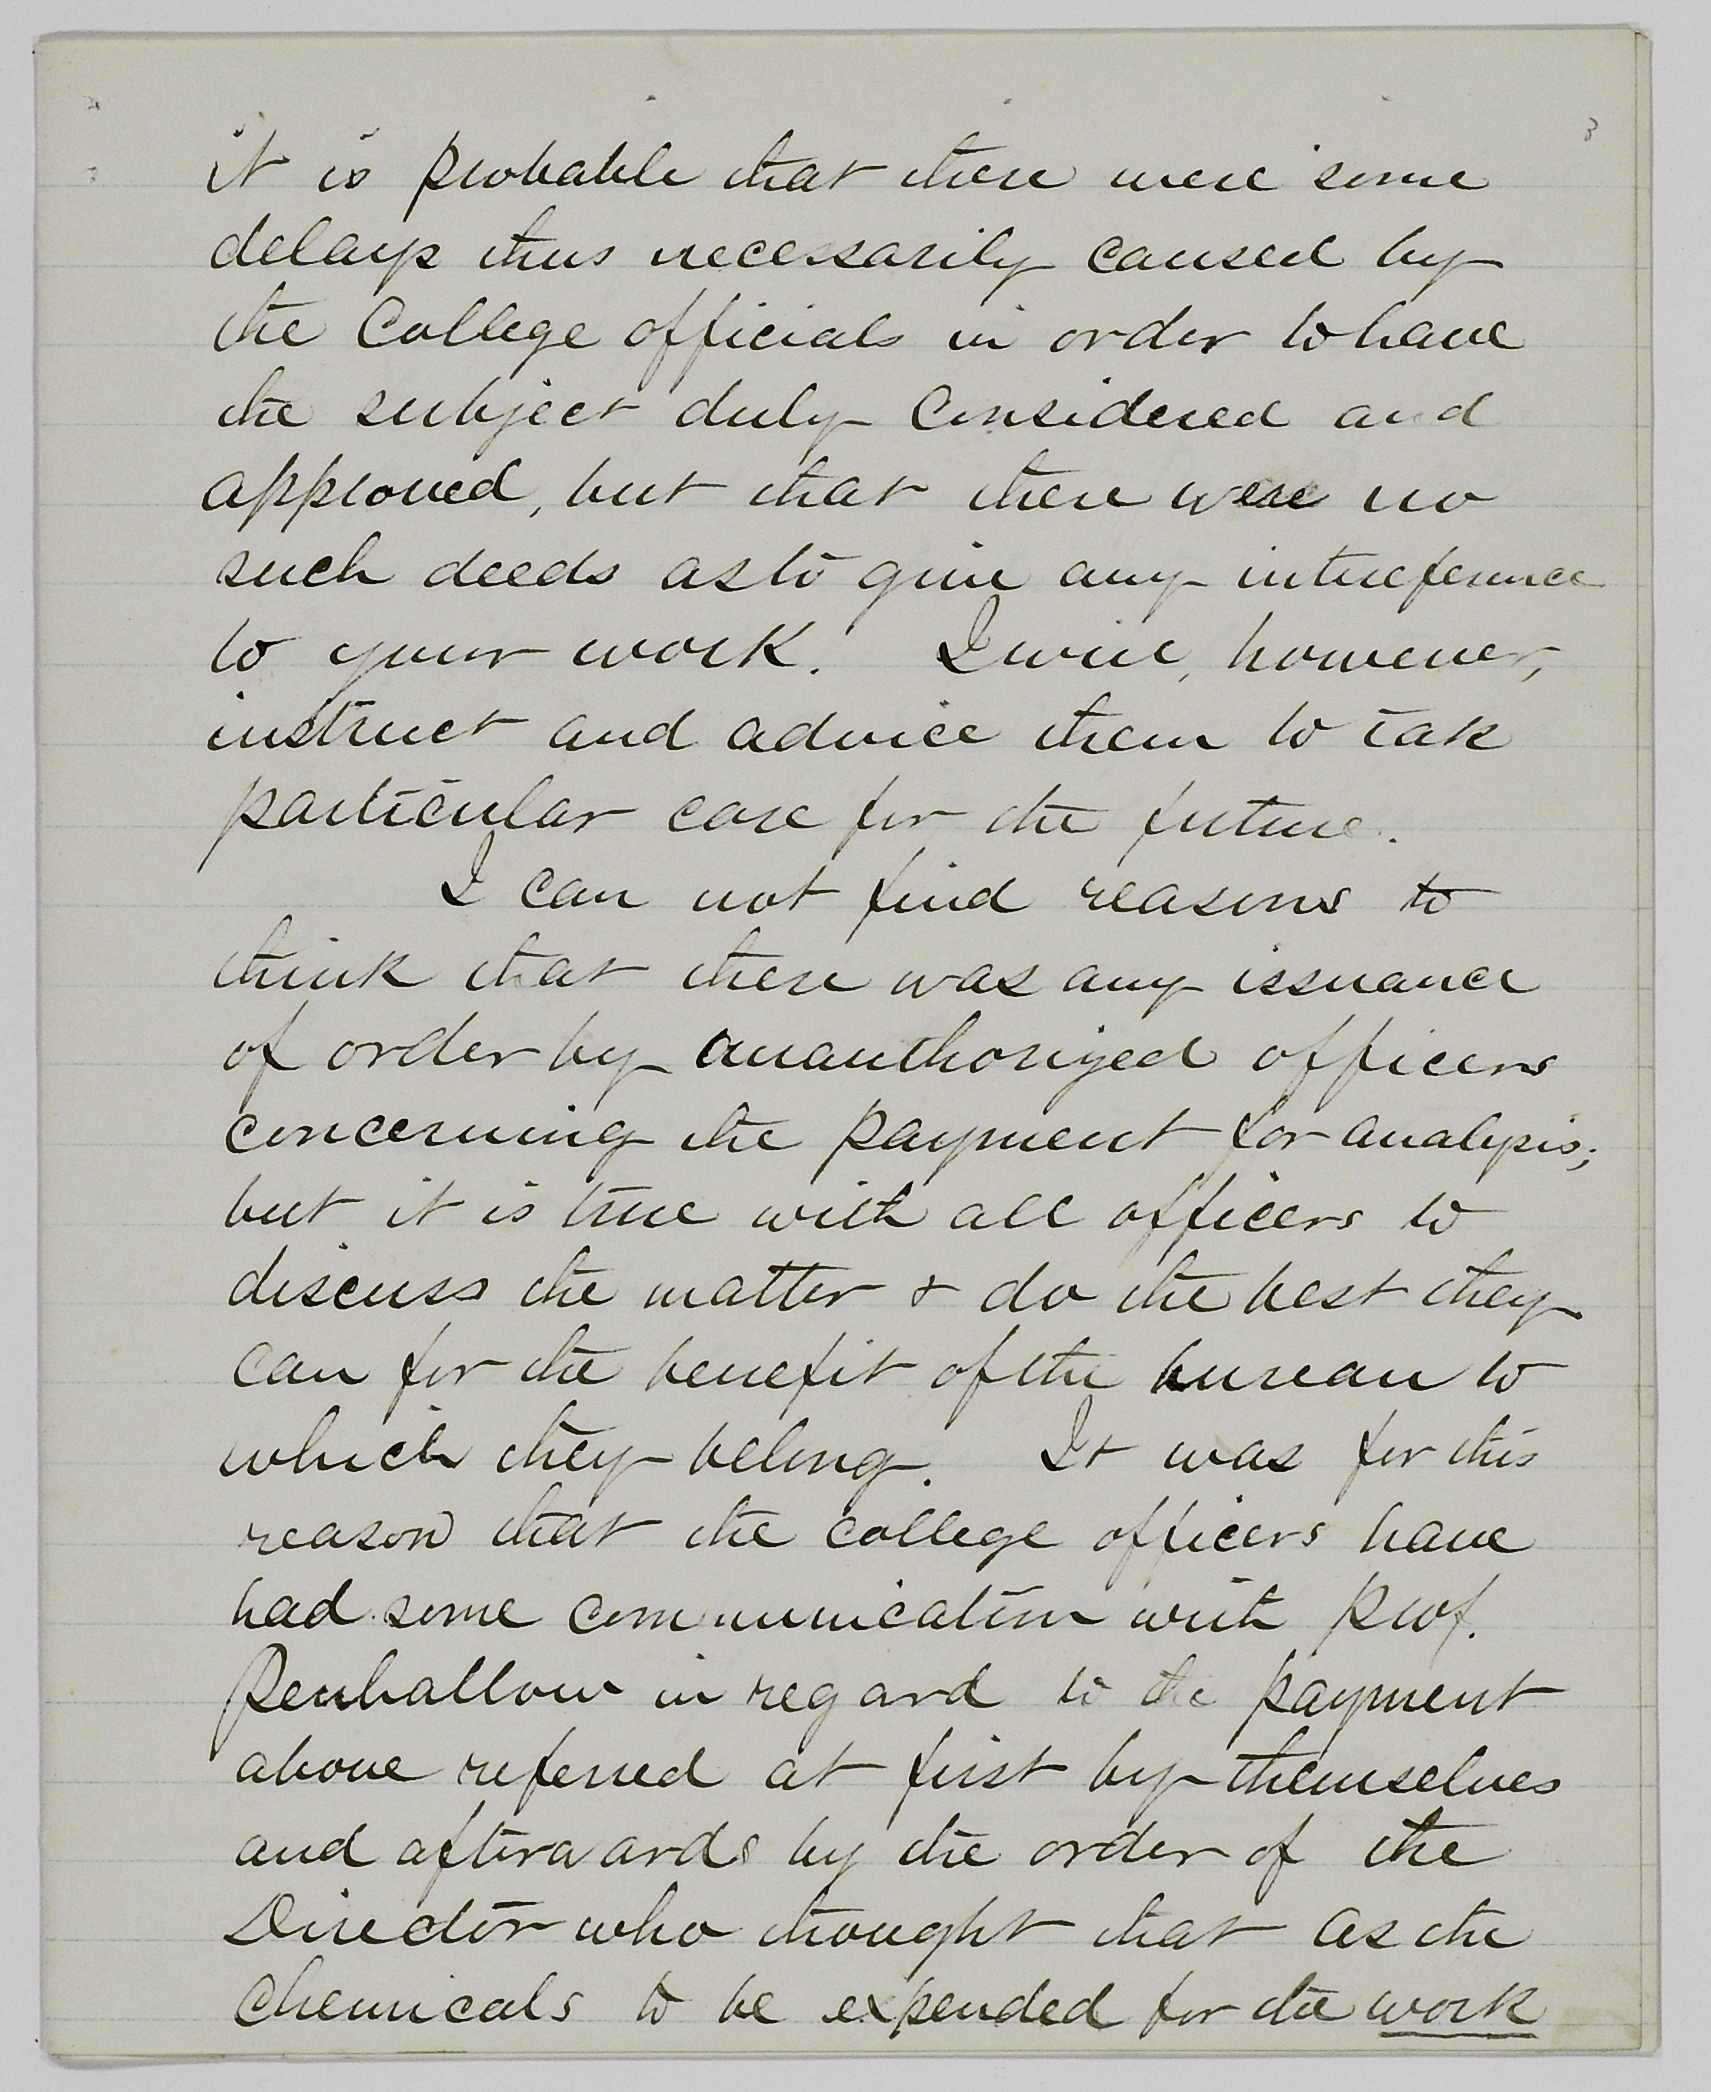 3
it is probable that there were some
delays thus necessarily caused by
the College officials in order to have
the subject duly Considered and
approved, but that there were no
such deeds as to give any intreference
to your work. I will, however,
instruct and advice them to tak
particular care for the future.
I can not find reasons to
think that there was any issuance
of order by anauthorized officers
concerning the payment for analysis;
but it is true with all officers to
discuss the matter & do the best they
can for the benefit of the bureau to
which they belong. It was for this
reason that the college officers have
had some communication with Prof.
Penhallow in regard to the payment
above referred at first by themselves
and afterwards by the order of the
Director who thought that as the
Chemicals to be expended for the work